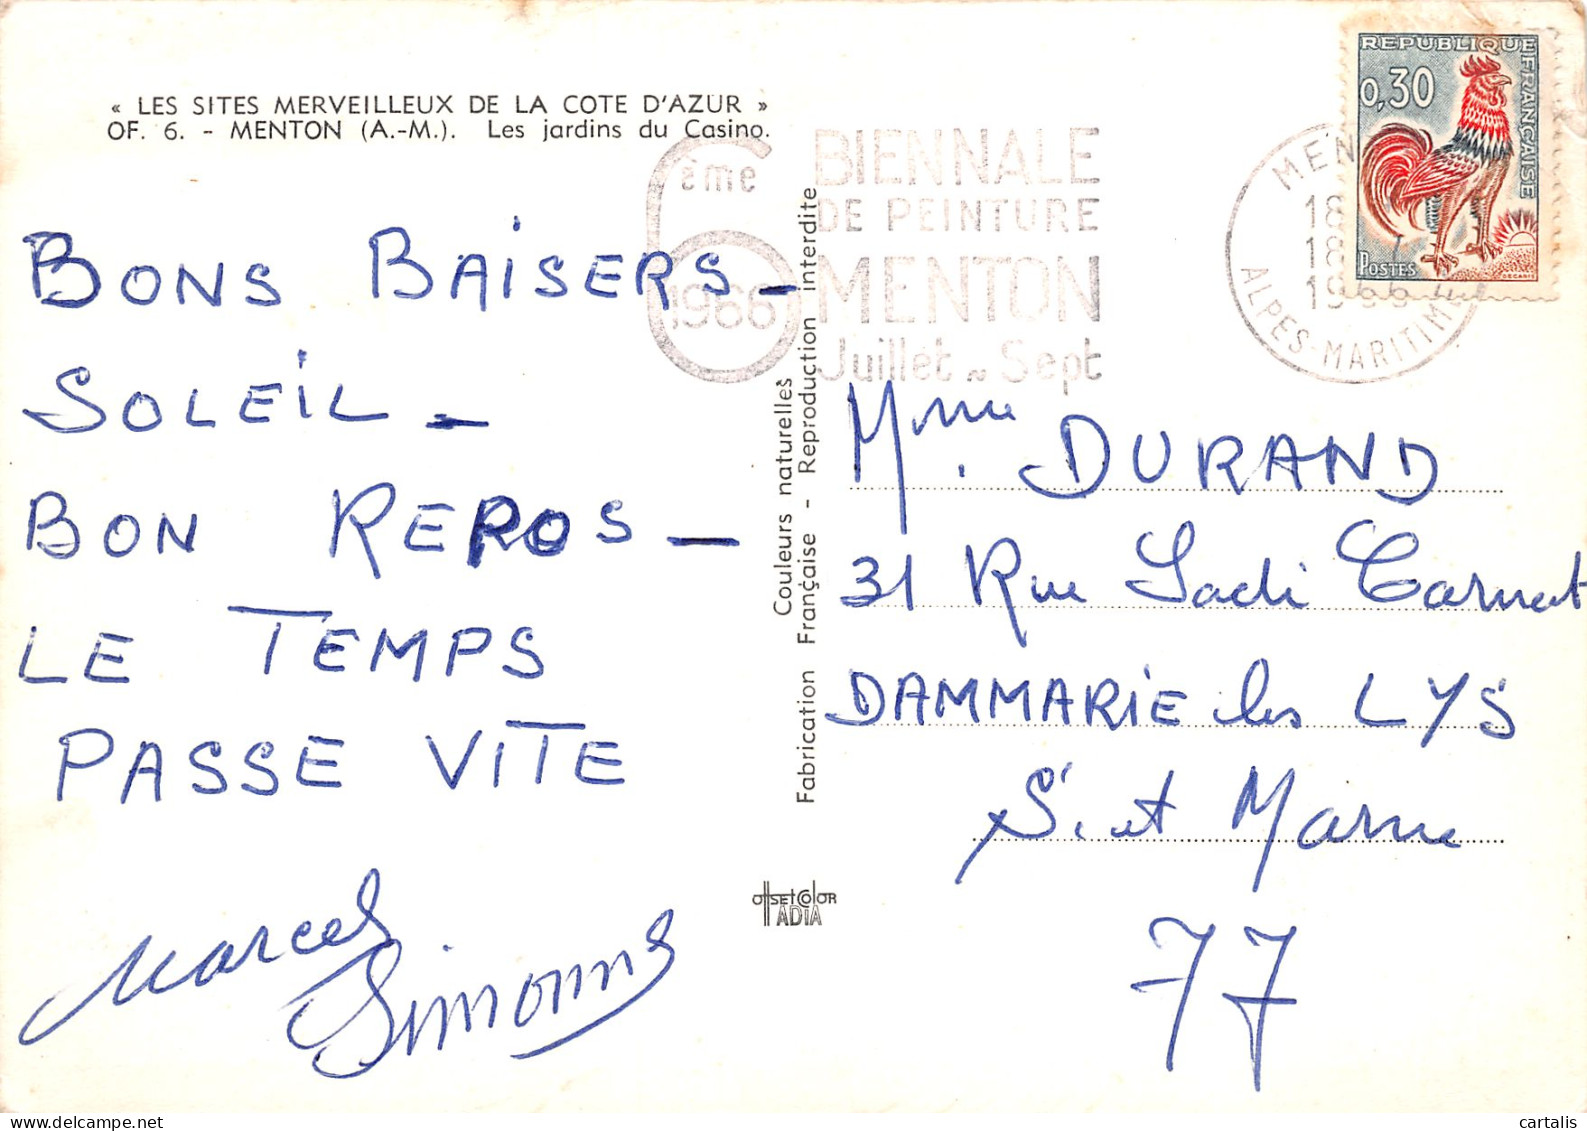 « LES SITES MERVEILLEUX DE LA COTE D'AZUR »
OF. 6. - MENTON (A.-M.). Les jardins du Casino.
BONS BAISERS -
SOLEIL -
BON REPOS -
LE TEMPS
PASSE VITE
Marcel
Simonne
6ème
1966
BIENNALE
DE PEINTURE
MENTON
Juillet ~ Sept
Couleurs naturelles
Fabrication Française - Reproduction interdite
OFFSETCOLOR
ADIA
REPUBLIQUE FRANÇAISE
0,30
POSTES
DECARIS
MEN
18
18
1966
ALPES-MARITIM
Mme. DURAND
31 Rue Sadi Carnot
DAMMARIE les LYS
S. et Marne
77
cartalis